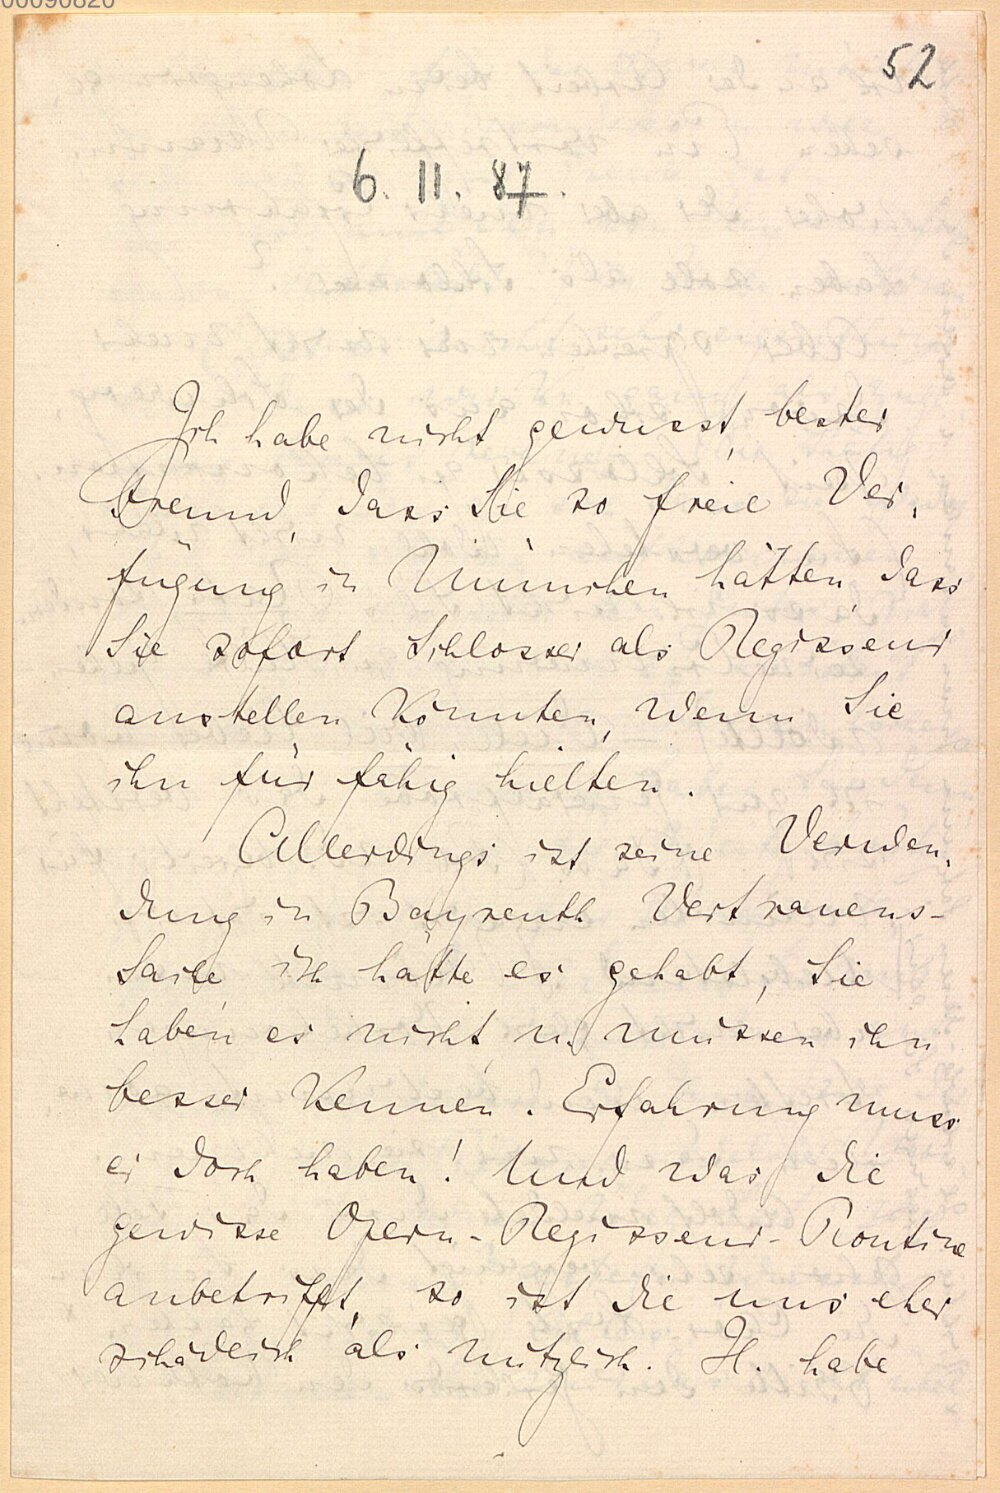 00090820
52
6. 11. 87.
Ich habe nicht gewusst, bester
Freund, dass Sie so freie Ver,
fügung in München hätten, dass
Sie sofort Schlosser als Regisseur
anstellen könnten, wenn Sie
ihn für fähig hielten.
Allerdings ist seine Verwen,
dung in Bayreuth Vertrauens-
Sache, ich hätte es gehabt, Sie
haben es nicht u. müssen ihn
besser kennen. Erfahrung muss
er doch haben! Und was die
gewisse Opern-Regisseur-Routine
anbetrifft, so ist die uns eher
schädlich als nützlich. H. habe